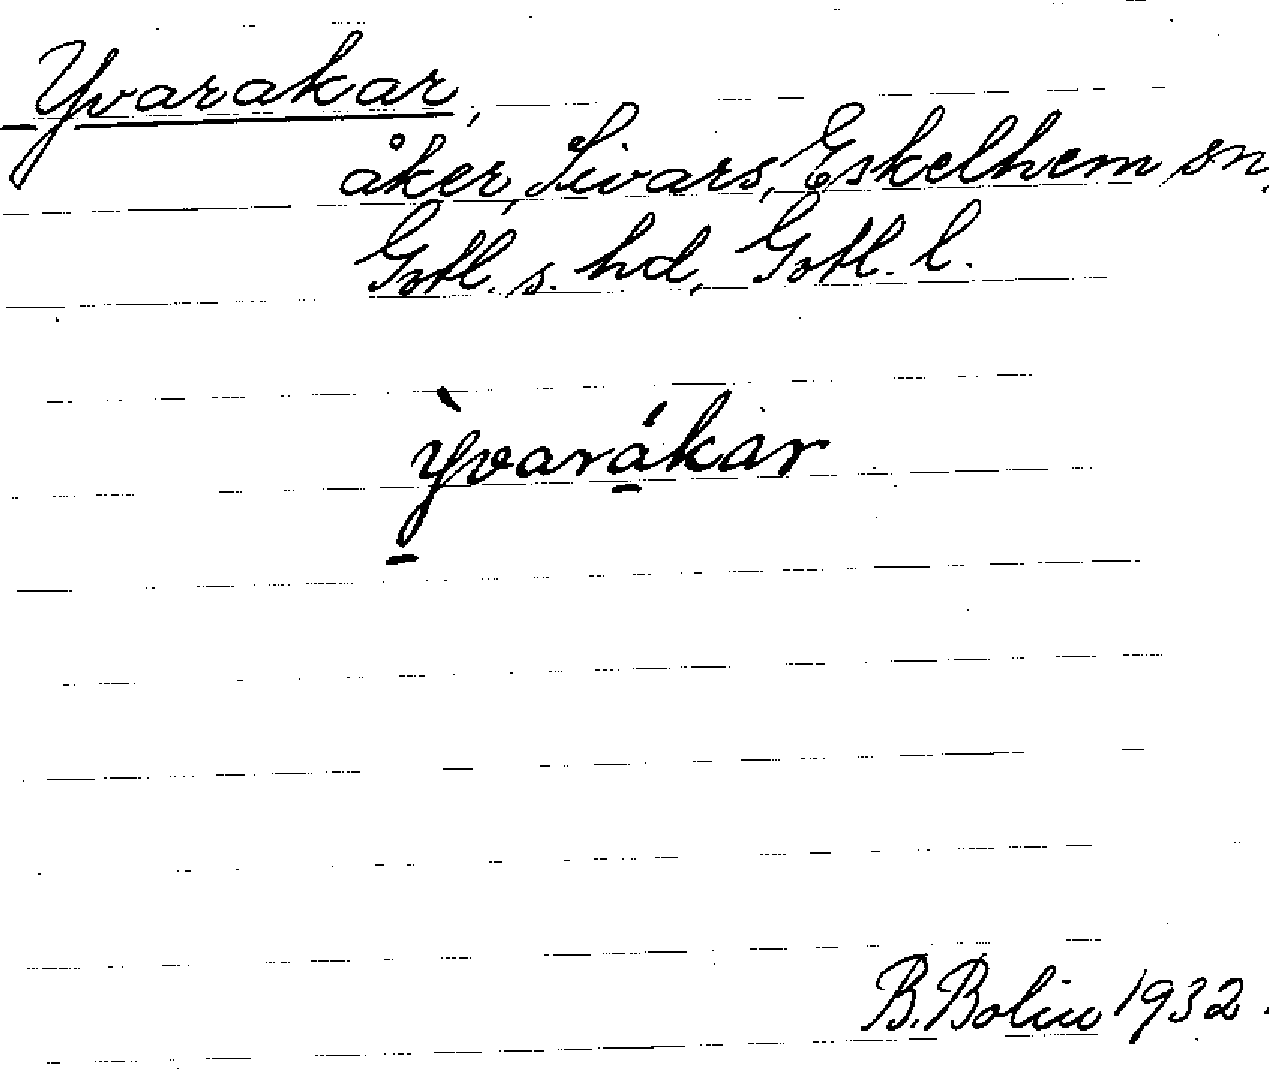 Yvarakar,
åker, Sivars, Eskelhem sn,
Gotl. s. hd, Gotl. l.
ỳvarákar
B. Bolin 1932.